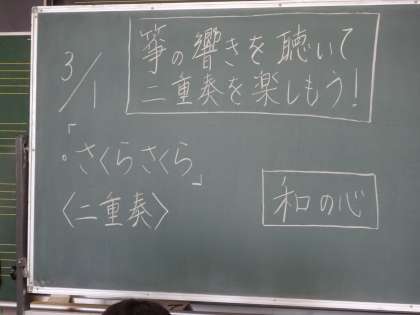 3/1
箏の響きを聴いて
二重奏を楽しもう!
「さくらさくら」
〈二重奏〉
和の心